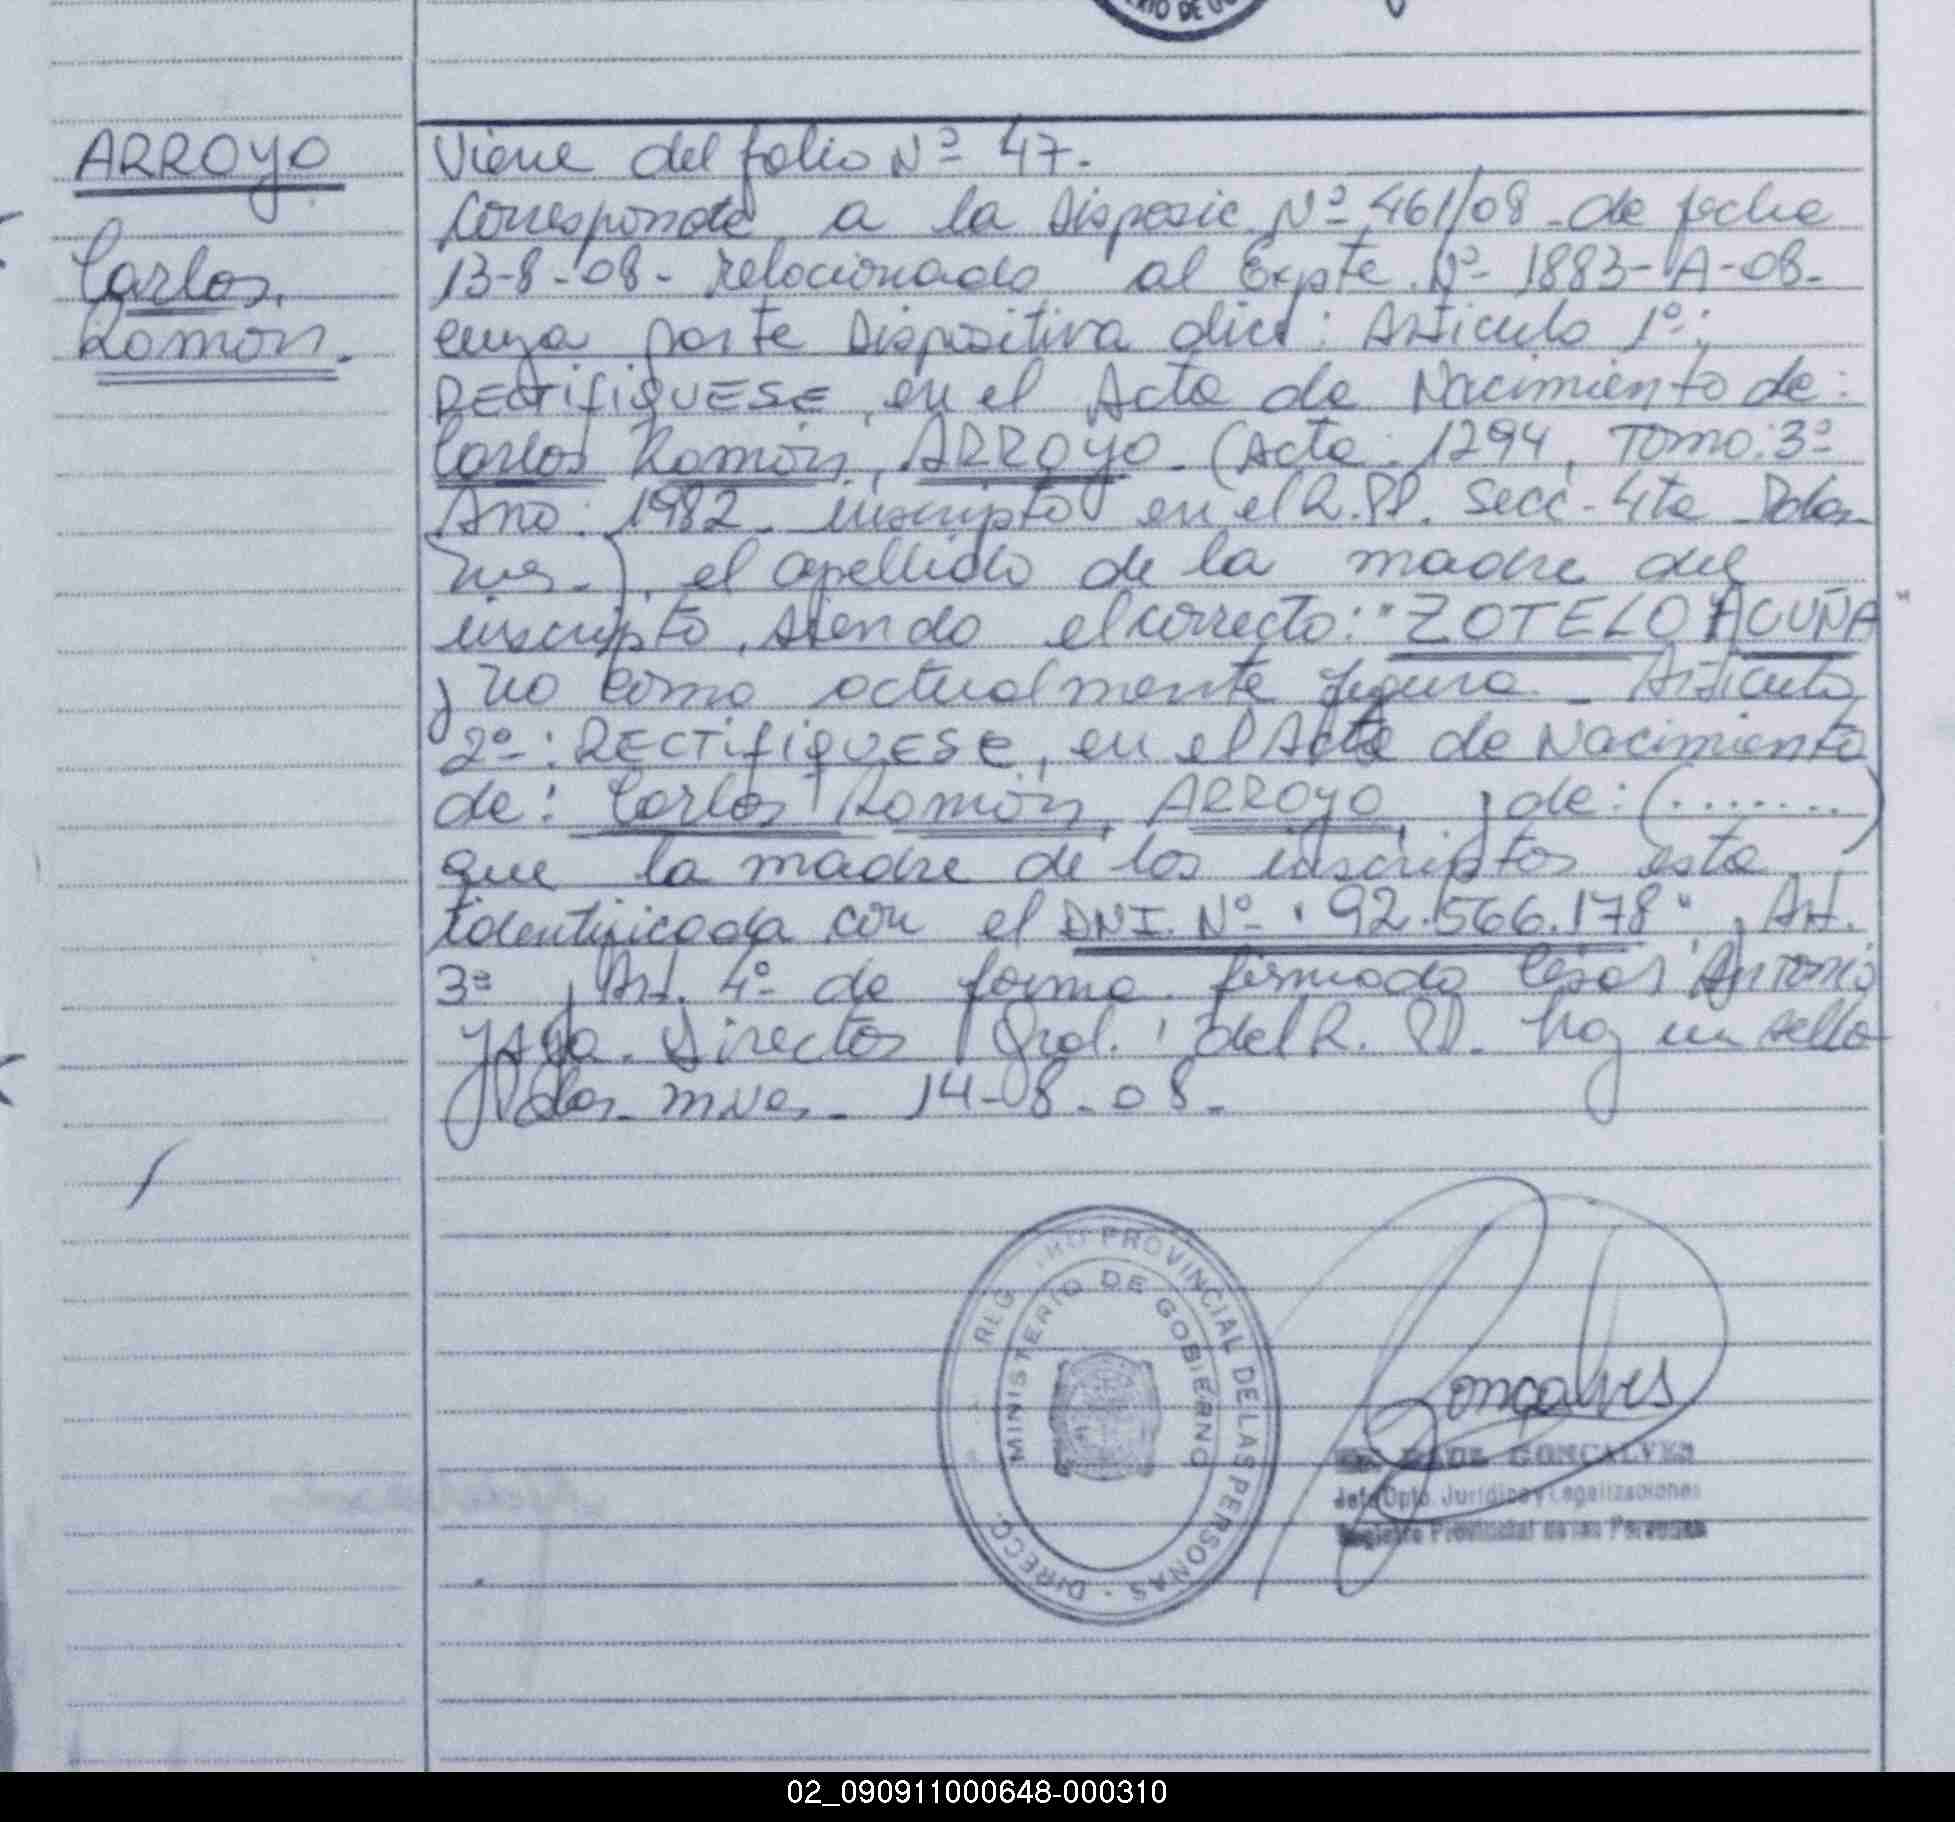 ERIO DE GO
ARROYO
Carlos
Ramon.
Viene del folio Nº 47.
Corresponde a la Disposic. Nº 461/08 - de fecha
13-8-08 - relacionado al Expte. Nº 1883-A-08-
cuya parte Dispositiva dice: Articulo 1º:
RECTIFIQUESE, en el Acta de Nacimiento de:
Carlos Ramón, ARROYO. (Acta: 1294, Tomo: 3º
Año: 1982. inscripto en el R.PP. Secc. 4ta
), el apellido de la madre del
inscripto, siendo el correcto: "ZOTELO ACUÑA"
y no como actualmente figura - Articulo
2º: RECTIFIQUESE, en el Acta de Nacimiento
de: Carlos Ramón, ARROYO, y de: (.......)
que la madre de los inscriptos esta
identificada con el DNI. Nº "92.566.178", Art.
3º y Art. 4º de forma. firmado Cesar Antonio
Director Gral. del R. PP. hay un sello
14-8-08-
REG TRO PROVINCIAL DE LAS PERSONAS - DIRECC.
MINISTERIO DE GOBIERNO
Gonçalves
GONCALVES
Jefe Dpto. Juridico y Legalizaciones
Registro Provincial de las Personas
02_090911000648-000310